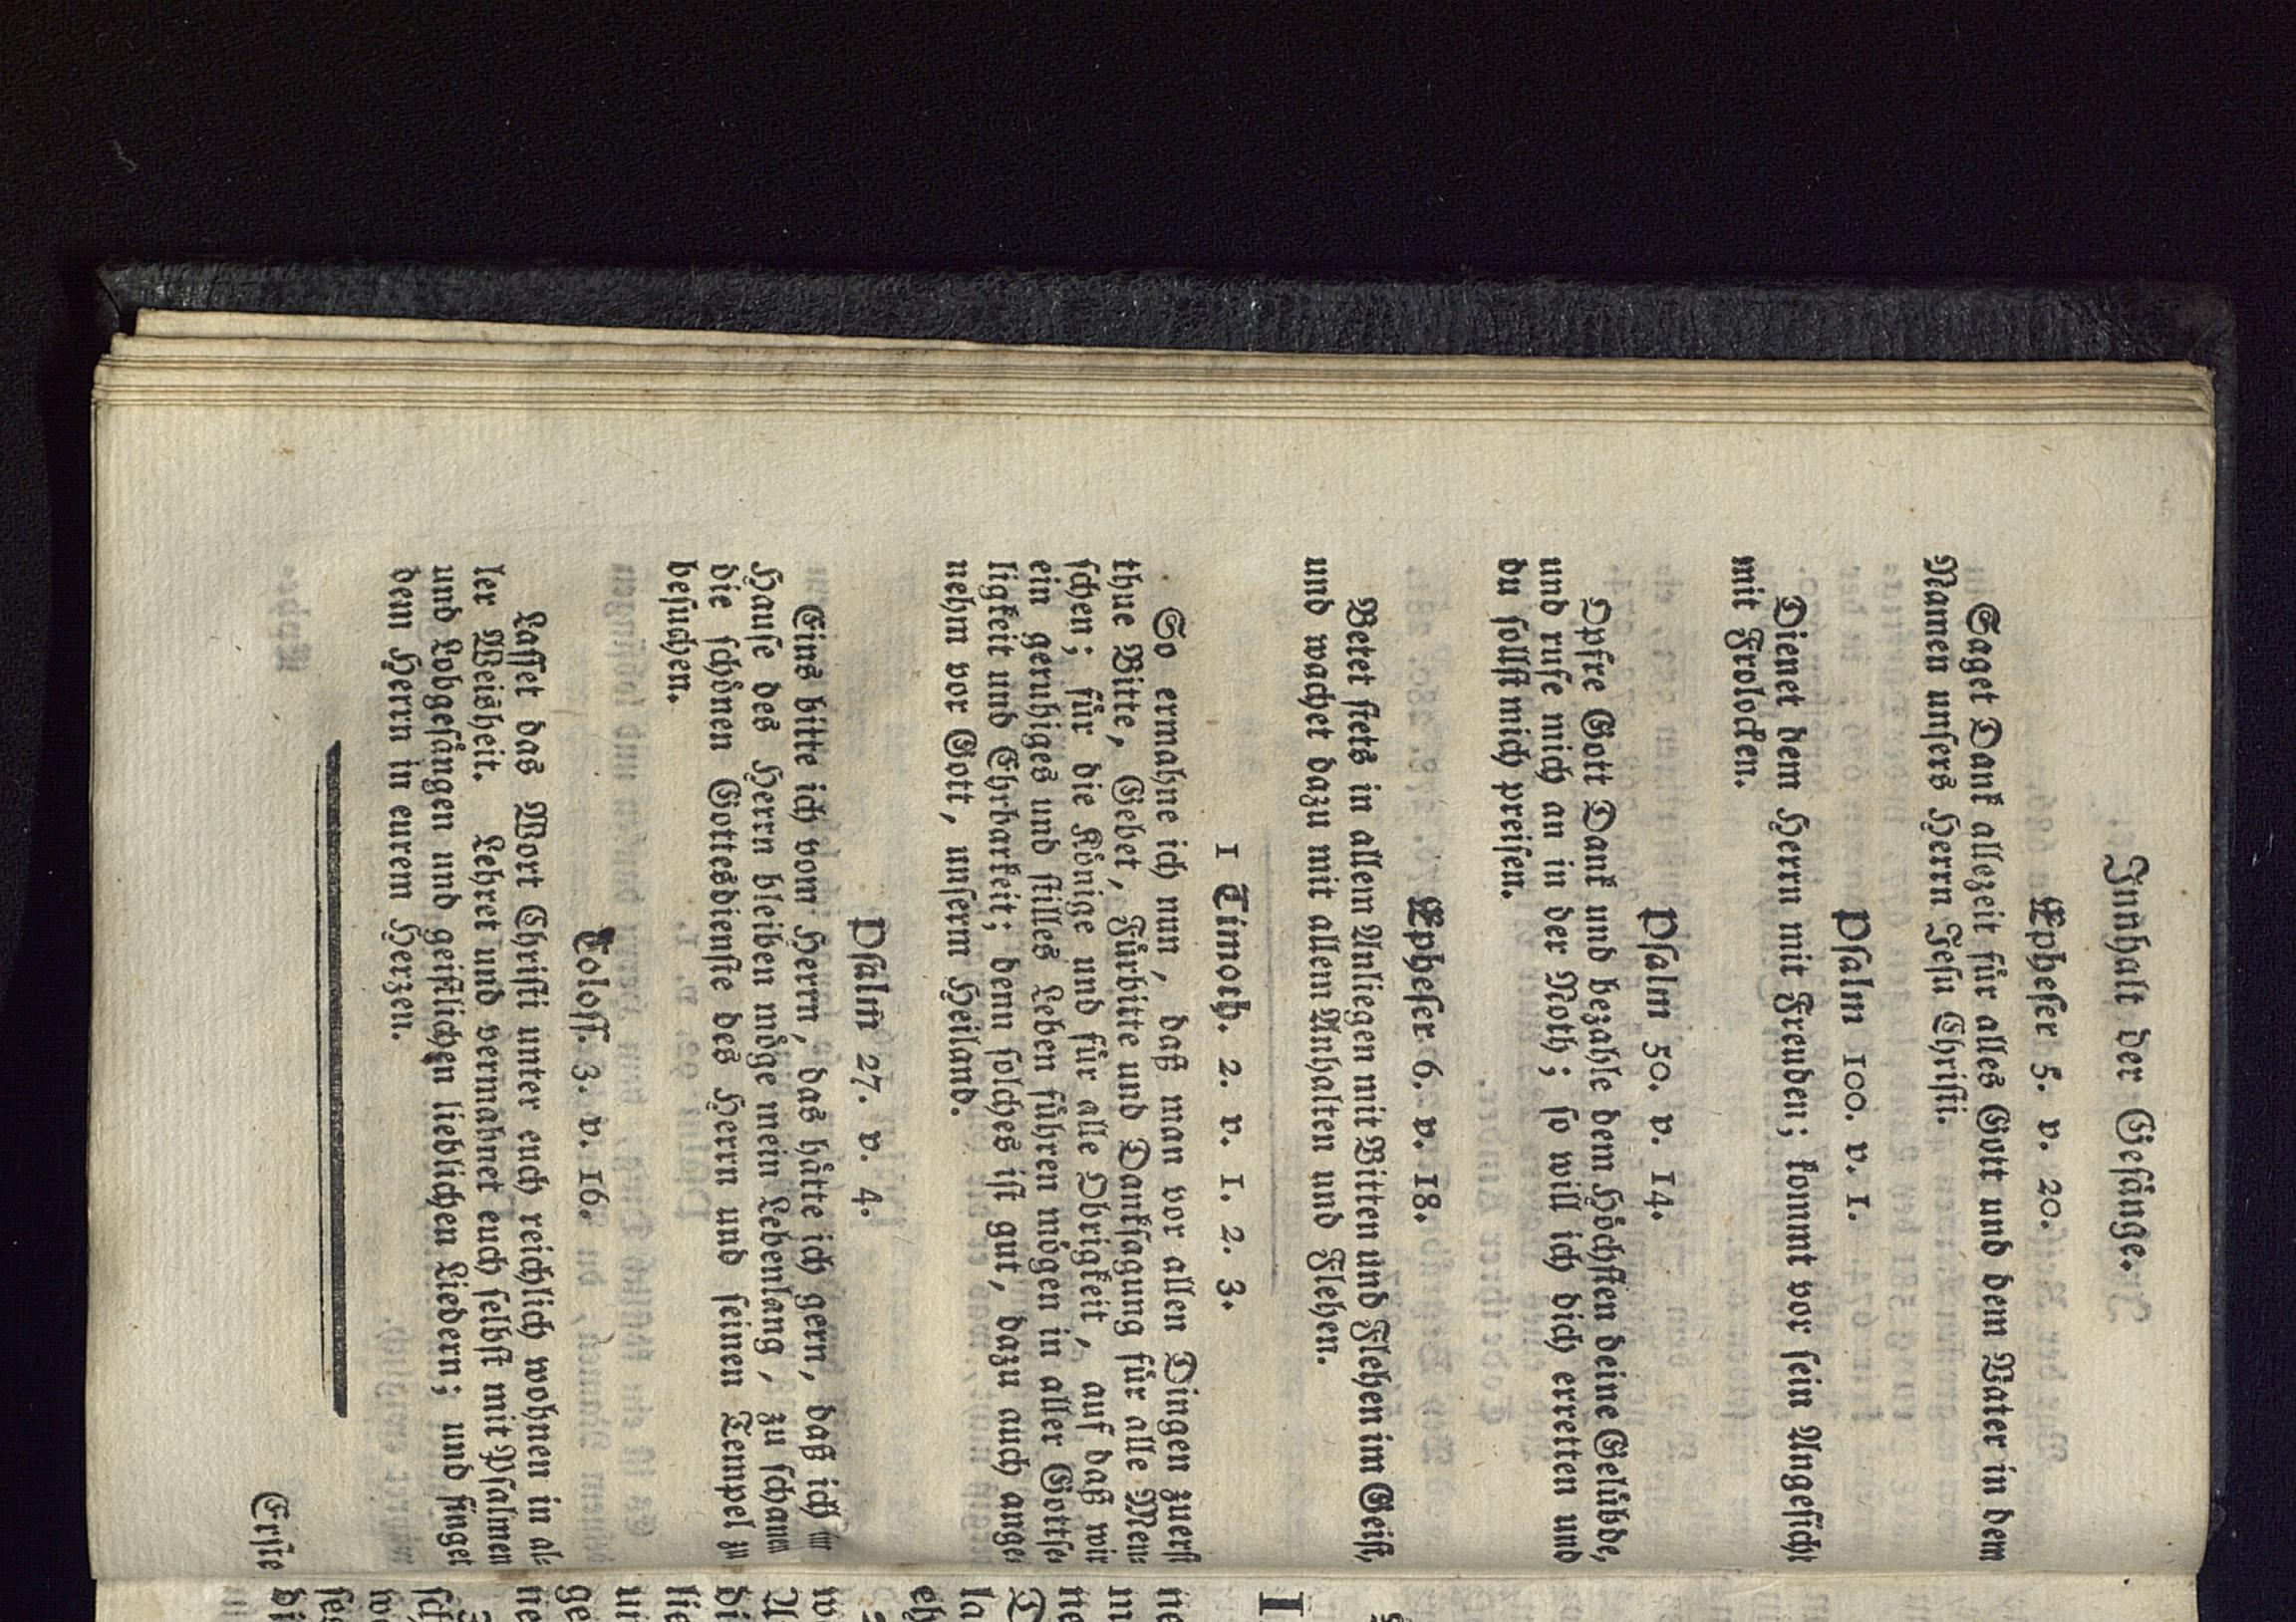 Innhalt der Gesänge.
Epheser 5. v. 20.
Saget Dank allezeit für alles Gott und dem Vater in dem
Namen unsers Herrn Jesu Christi.
Psalm 100. v. 1.
Dienet dem Herrn mit Freuden; kommt vor sein Angesicht
mit Frolocken.
Psalm 50. v. 14.
Opfre Gott Dank und bezahle dem Höchsten deine Gelübde,
und rufe mich an in der Noth; so will ich dich erretten und
du sollst mich preisen.
Epheser 6. v. 18.
Betet stets in allem Anliegen mit Bitten und Flehen im Geist,
und wachet dazu mit allem Anhalten und Flehen.
1 Timoth. 2. v. 1. 2. 3.
So ermahne ich nun, daß man vor allen Dingen zuerst
thue Bitte, Gebet, Fürbitte und Danksagung für alle Men-
schen; für die Könige und für alle Obrigkeit, auf daß wir
ein geruhiges und stilles Leben führen mögen in aller Gottse-
ligkeit und Ehrbarkeit; denn solches ist gut, dazu auch ange-
nehm vor Gott, unserm Heiland.
Psalm 27. v. 4.
Eins bitte ich vom Herrn, das hätte ich gern, daß ich im
Hause des Herrn bleiben möge mein Lebenlang, zu schauen
die schönen Gottesdienste des Herrn und seinen Tempel zu
besuchen.
Coloss. 3. v. 16.
Lasset das Wort Christi unter euch reichlich wohnen in al-
ler Weisheit. Lehret und vermahnet euch selbst mit Psalmen
und Lobgesängen und geistlichen lieblichen Liedern; und singet
dem Herrn in eurem Herzen.
Erste